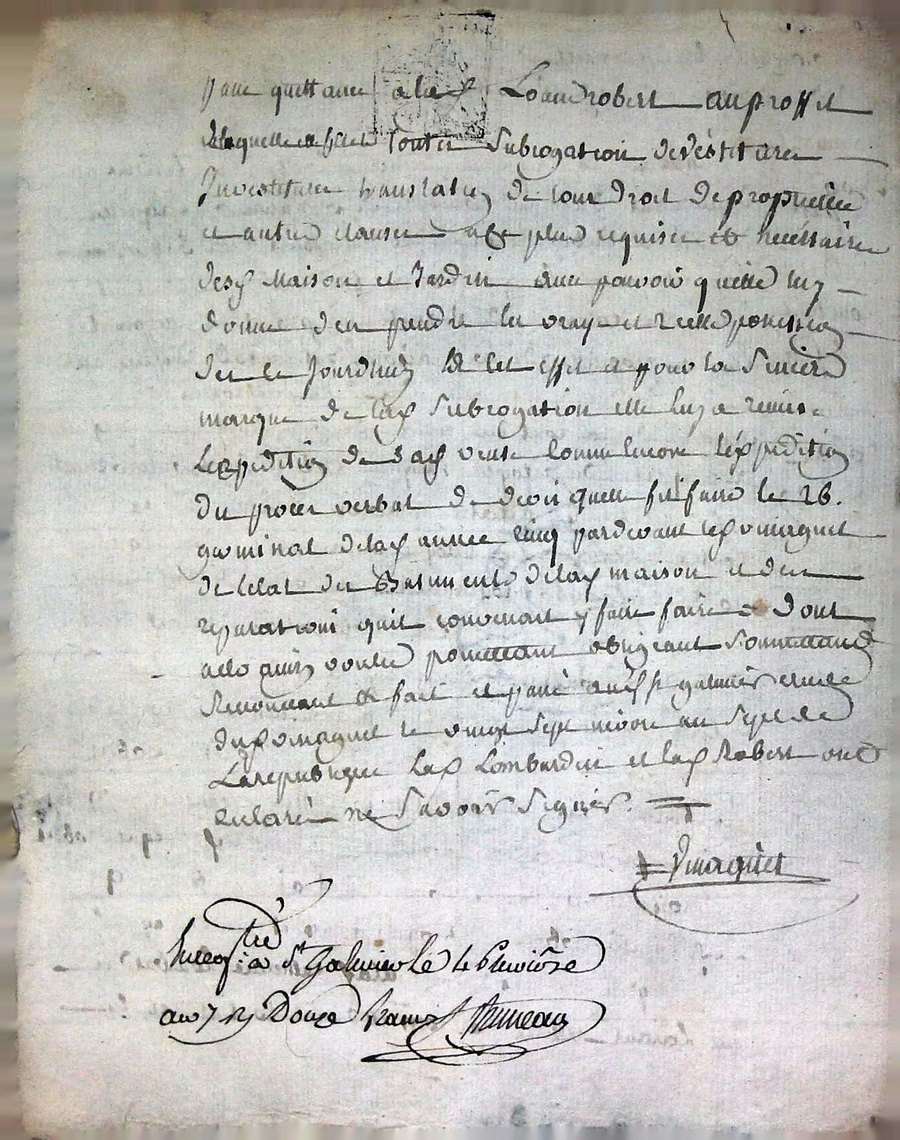 quittance a lad. robert au proffit
de laquelle elle fait toutte subrogation devestiture
Investiture translation de tout droit de proprietée
et autre clauses plus requise et necessaire
desd. maison et Jardin avec pouvoir quelle luy
donne den prendre la vraye et reelle possession
des ce Jourdhuy a cet effet et pour la sincere
marque de lad. subrogation elle luy a remis
Lexpedition de sad. vente comme encore lexpedition
du procès verbal quelle fit faire le 26.
germinal de lad. année cinq pardevant led. vinagiet
de letat des Batiments de lad. maison et des
reparations quil convenait y faire faire dont
acte ainsy voulu promettant obligeant soumettant
Renonceant &. fait et passé a St galmier etude
dud. vinagiet le vingt sept nivose an sept de
La republique Lad. Lombardin et lad. Robert ont
declaré ne savoir signer.
vinagiet
Enregtré a St Galmier le 4 Pluviôse
an 7 R. Douze francs